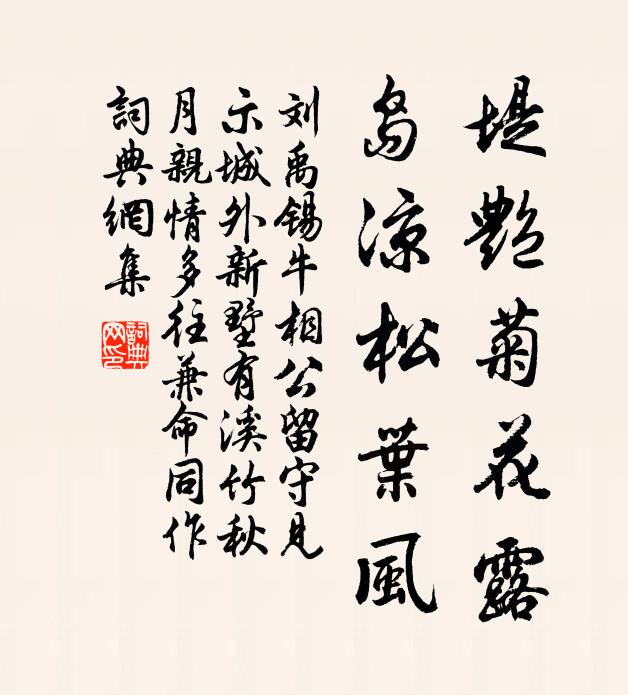 堤艷菊花露
島涼松葉風
刘禹锡牛相公留守見
示城外新墅有溪竹秋
月親情多往兼命同作
詞典網集
詞典網印